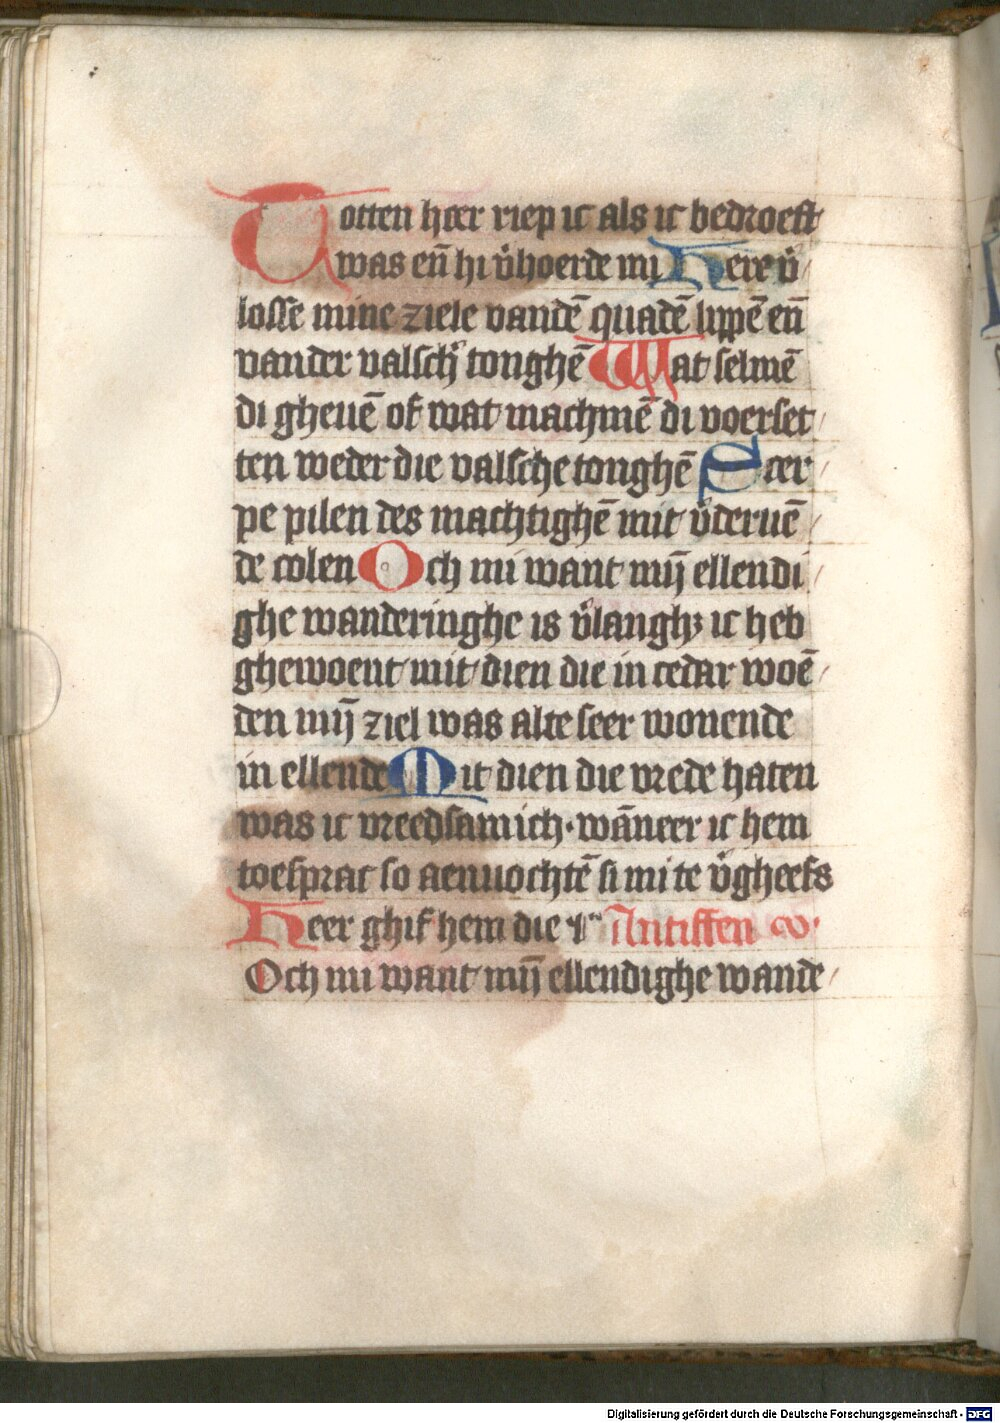 Totten heer riep ic als ic bedroeft
was en̄ hi v̉hoerde mi Here v̉
losse mine ziele vandē quadē lippē en̄
vander valsch̉ tonghē Wat selmē
di gheuē of wat machmē di voerset
ten weder die valsche tonghē Scer
pe pilen des machtighē mit v̉deruē
de colen Och mi want mÿ ellendi
ghe wanderinghe is v̉langhꝫ ic heb
ghewoent mit dien die in cedar woē
den mÿ ziel was alte seer wonende
in ellende Mit dien die vrede haten
was ic vreedsamich · wāneer ic hem
toesprac so aenuochtē si mi te v̉gheefs
Heer ghif hem die Antiffen
Och mi want mÿ ellendighe wande
Digitalisierung gefördert durch die Deutsche Forschungsgemeinschaft - DFG